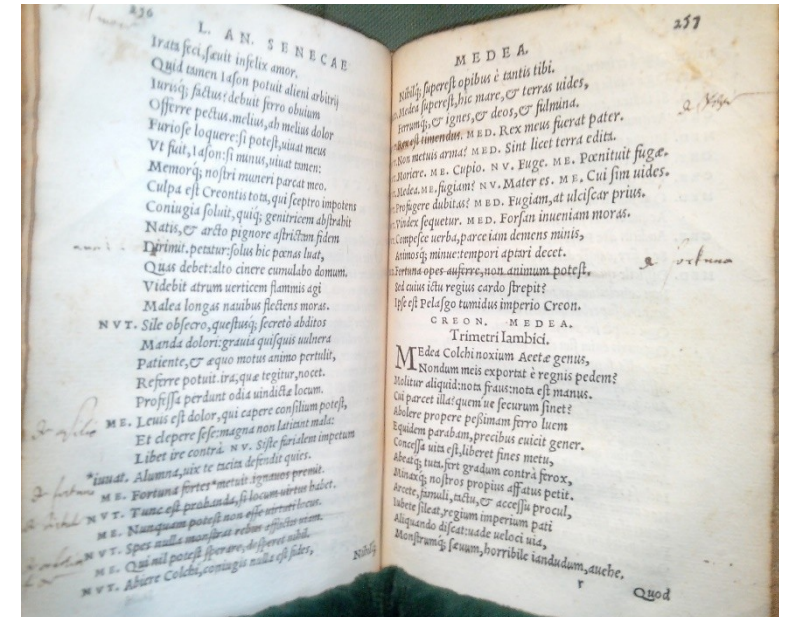 236
L. AN. SENECAE
Irata feci, sæuit infelix amor.
Quid tamen Iason potuit alieni arbitrij
Iurisq; factus? debuit ferro obuium
Offerre pectus. melius, ah melius dolor
Furiose loquere: si potest, uiuat meus
Vt fuit, Iason: si minus, uiuat tamen:
Memorq; nostri muneri parcat meo.
Culpa est Creontis tota, qui sceptro impotens
Coniugia soluit, quiq; genitricem abstrahit
Natis, & arcto pignore astrictam fidem
Dirimit. petatur: solus hic pœnas luat,
Quas debet: alto cinere cumulabo domum.
Videbit atrum uerticem flammis agi
Malea longas nauibus flectens moras.
NVT. Sile obsecro, questusq; secretò abditos
Manda dolori: grauia quisquis uulnera
Patiente, & æquo motus animo pertulit,
Referre potuit. ira, quæ tegitur, nocet.
Professa perdunt odia uindictæ locum.
ME. Leuis est dolor, qui capere consilium potest,
Et clepere sese: magna non latitant mala:
Libet ire contrà. NV. Siste furialem impetum
*iuuat. Alumna, uix te tacita defendit quies.
ME. Fortuna fortes *metuit. ignauos premit.
NVT. Tunc est probanda, si locum uirtus habet.
ME. Nunquam potest non esse uirtuti locus.
NVT. Spes nulla monstrat rebus afflictis uiam.
ME. Qui nil potest sperare, desperet nihil.
NVT. Abiere Colchi, coniugis nulla est fides,
Nihilq;
257
MEDEA.
Nihilq; superest opibus è tantis tibi.
Medea superest, hic mare, & terras uides,
Ferrumq;, & ignes, & deos, & fulmina.
Rex est timendus. MED. Rex meus fuerat pater.
Non metuis arma? MED. Sint licet terra edita.
Moriere. ME. Cupio. NV. Fuge. ME. Pœnituit fugæ.
Medea. ME. fugiam? NV. Mater es. ME. Cui sim uides.
Profugere dubitas? MED. Fugiam, at ulciscar prius.
Vindex sequetur. MED. Forsan inueniam moras.
Compesce uerba, parce iam demens minis,
Animosq; minue: tempori aptari decet.
Fortuna opes auferre, non animum potest,
fortuna
Sed cuius ictu regius cardo strepit?
Ipse est Pelasgo tumidus imperio Creon.
CREON. MEDEA.
Trimetri Iambici.
MEdea Colchi noxium Aeetæ genus,
Nondum meis exportat è regnis pedem?
Molitur aliquid: nota fraus: nota est manus.
Cui parcet illa? quem'ue securum sinet?
Abolere propere pessimam ferro luem
Equidem parabam, precibus euicit gener.
Concessa uita est, liberet fines metu,
Abeatq; tuta. fert gradum contrà ferox,
Minaxq; nostros propius affatus petit.
Arcete, famuli, tactu, & accessu procul,
Iubete sileat, regium imperium pati
Aliquando discat: uade ueloci uia,
Monstrumq; sæuum, horribile iandudum, auehe.
r
Quod